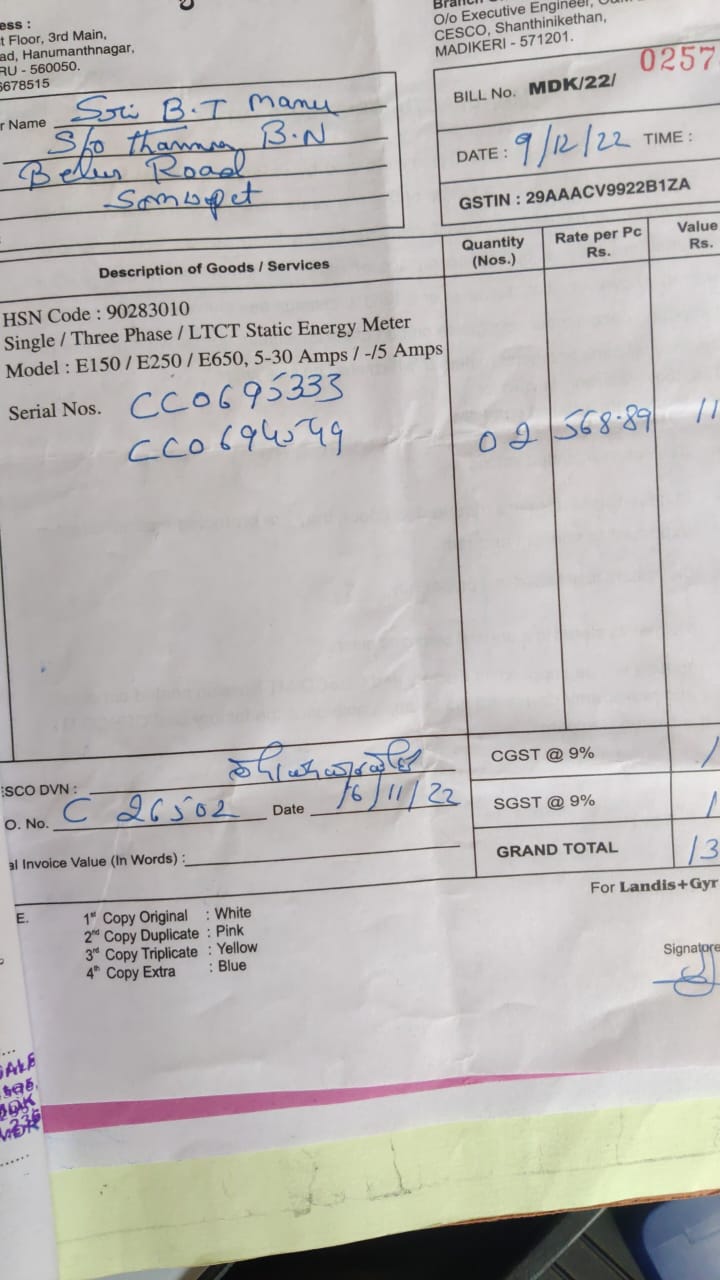 ess :
t Floor, 3rd Main,
ad, Hanumanthnagar,
RU - 560050.
6678515
O/o Executive Engineer,
CESCO, Shanthinikethan,
MADIKERI - 571201.
r Name Sri B.T Manu
S/o Thamma B.N
Belur Road
Somwpet
BILL No. MDK/22/ 0257
DATE : 9/12/22 TIME :
GSTIN : 29AAACV9922B1ZA
Description of Goods / Services
Quantity (Nos.)
Rate per Pc Rs.
Value Rs.
HSN Code : 90283010
Single / Three Phase / LTCT Static Energy Meter
Model : E150 / E250 / E650, 5-30 Amps / -/5 Amps
Serial Nos. CC0695333
CC0694549
02 568.89 11
ESCO DVN :
O. No. C 26502 Date 16/11/22
al Invoice Value (In Words) :
CGST @ 9%
SGST @ 9%
GRAND TOTAL 13
For Landis+Gyr
E.
1st Copy Original : White
2nd Copy Duplicate : Pink
3rd Copy Triplicate : Yellow
4th Copy Extra : Blue
Signatore